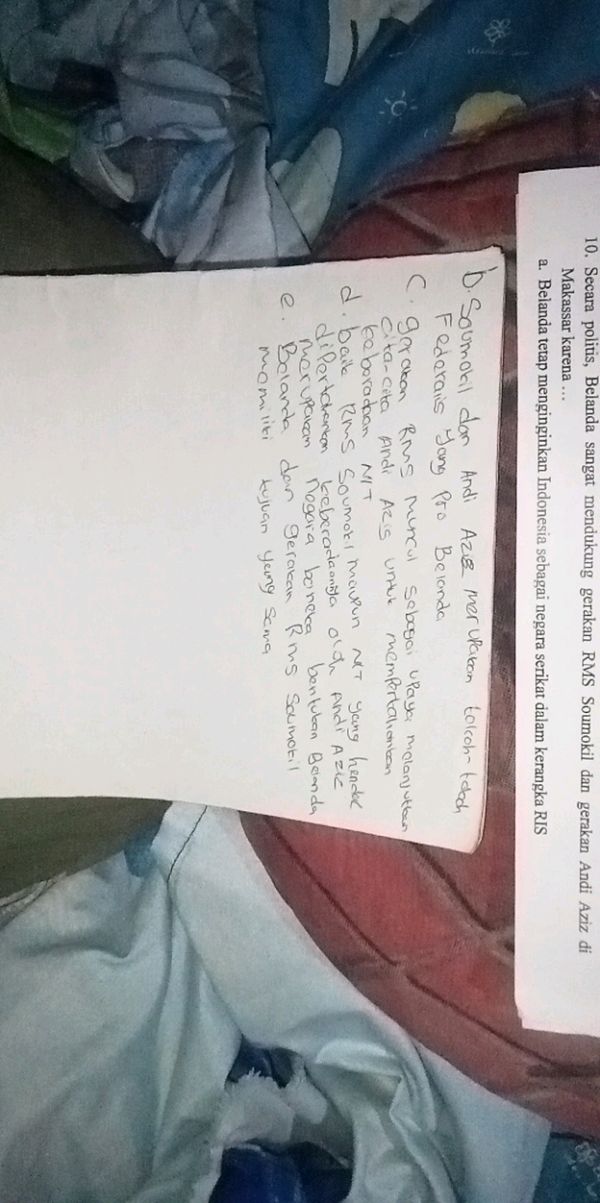 10. Secara politis, Belanda sangat mendukung gerakan RMS Soumokil dan gerakan Andi Aziz di
Makassar karena ...
a. Belanda tetap menginginkan Indonesia sebagai negara serikat dalam kerangka RIS
b. Soumokil dan Andi Aziz merupakan tokoh-tokoh
Federalis yang pro Belanda
c. gerakan RMS muncul sebagai upaya melanjutkan
cita-cita Andi Azis untuk mempertahankan
keberadaan NIT
d. baik RMS Soumokil maupun NIT yang hendak
dipertahankan keberadaannya oleh Andi Aziz
merupakan negara boneka bentukan Belanda
e. Belanda dan gerakan RMS Soumokil
memiliki tujuan yang sama